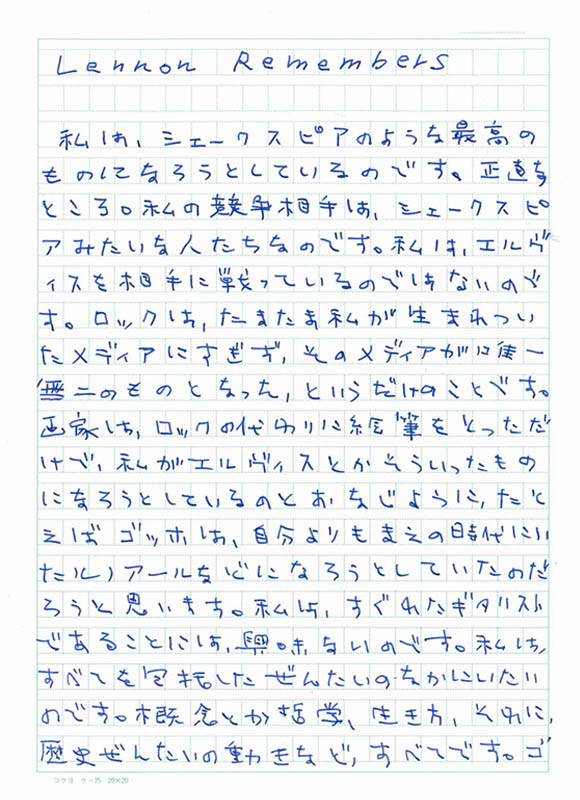 Lennon Remembers
私は、シェークスピアのような最高の
ものになろうとしているのです。正直な
ところ。私の競争相手は、シェークスピ
アみたいな人たちなのです。私は、エルヴ
ィスを相手に戦っているのではないので
す。ロックは、たまたま私が生まれつい
たメディアにすぎず、そのメディアが唯一
無二のものとなった、というだけのことです。
画家は、ロックの代わりに絵筆をとっただ
けで、私がエルヴィスとかそういったもの
になろうとしているのとおなじように、たと
えばゴッホは、自分よりもまえの時代にい
たルノアールなどになろうとしていたのだ
ろうと思います。私は、すぐれたギタリスト
であることには、興味ないのです。私は、
すべてを包括したぜんたいのなかにいたい
のです。概念とか哲学、生き方、それに、
歴史ぜんたいの動きなど、すべてです。ゴ
コクヨ ケー75 20×20